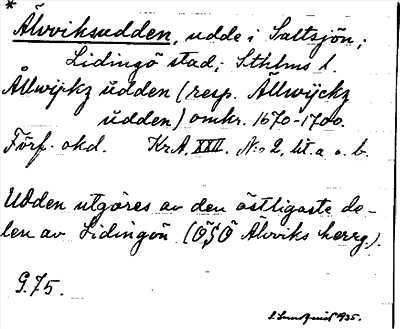 *
Älvviksudden, udde i Saltsjön;
Lidingö stad; Sthlms l.
Ållwijkz udden (resp. Ällwijckz
udden) omkr. 1670-1700.
Förf. okd. Kr.A. XXII. No 2, lit. a o. b.
Udden utgöres av den östligaste de-
len av Lidingön (ÖSÖ Älvviks herrg.).
G.75.
1935.